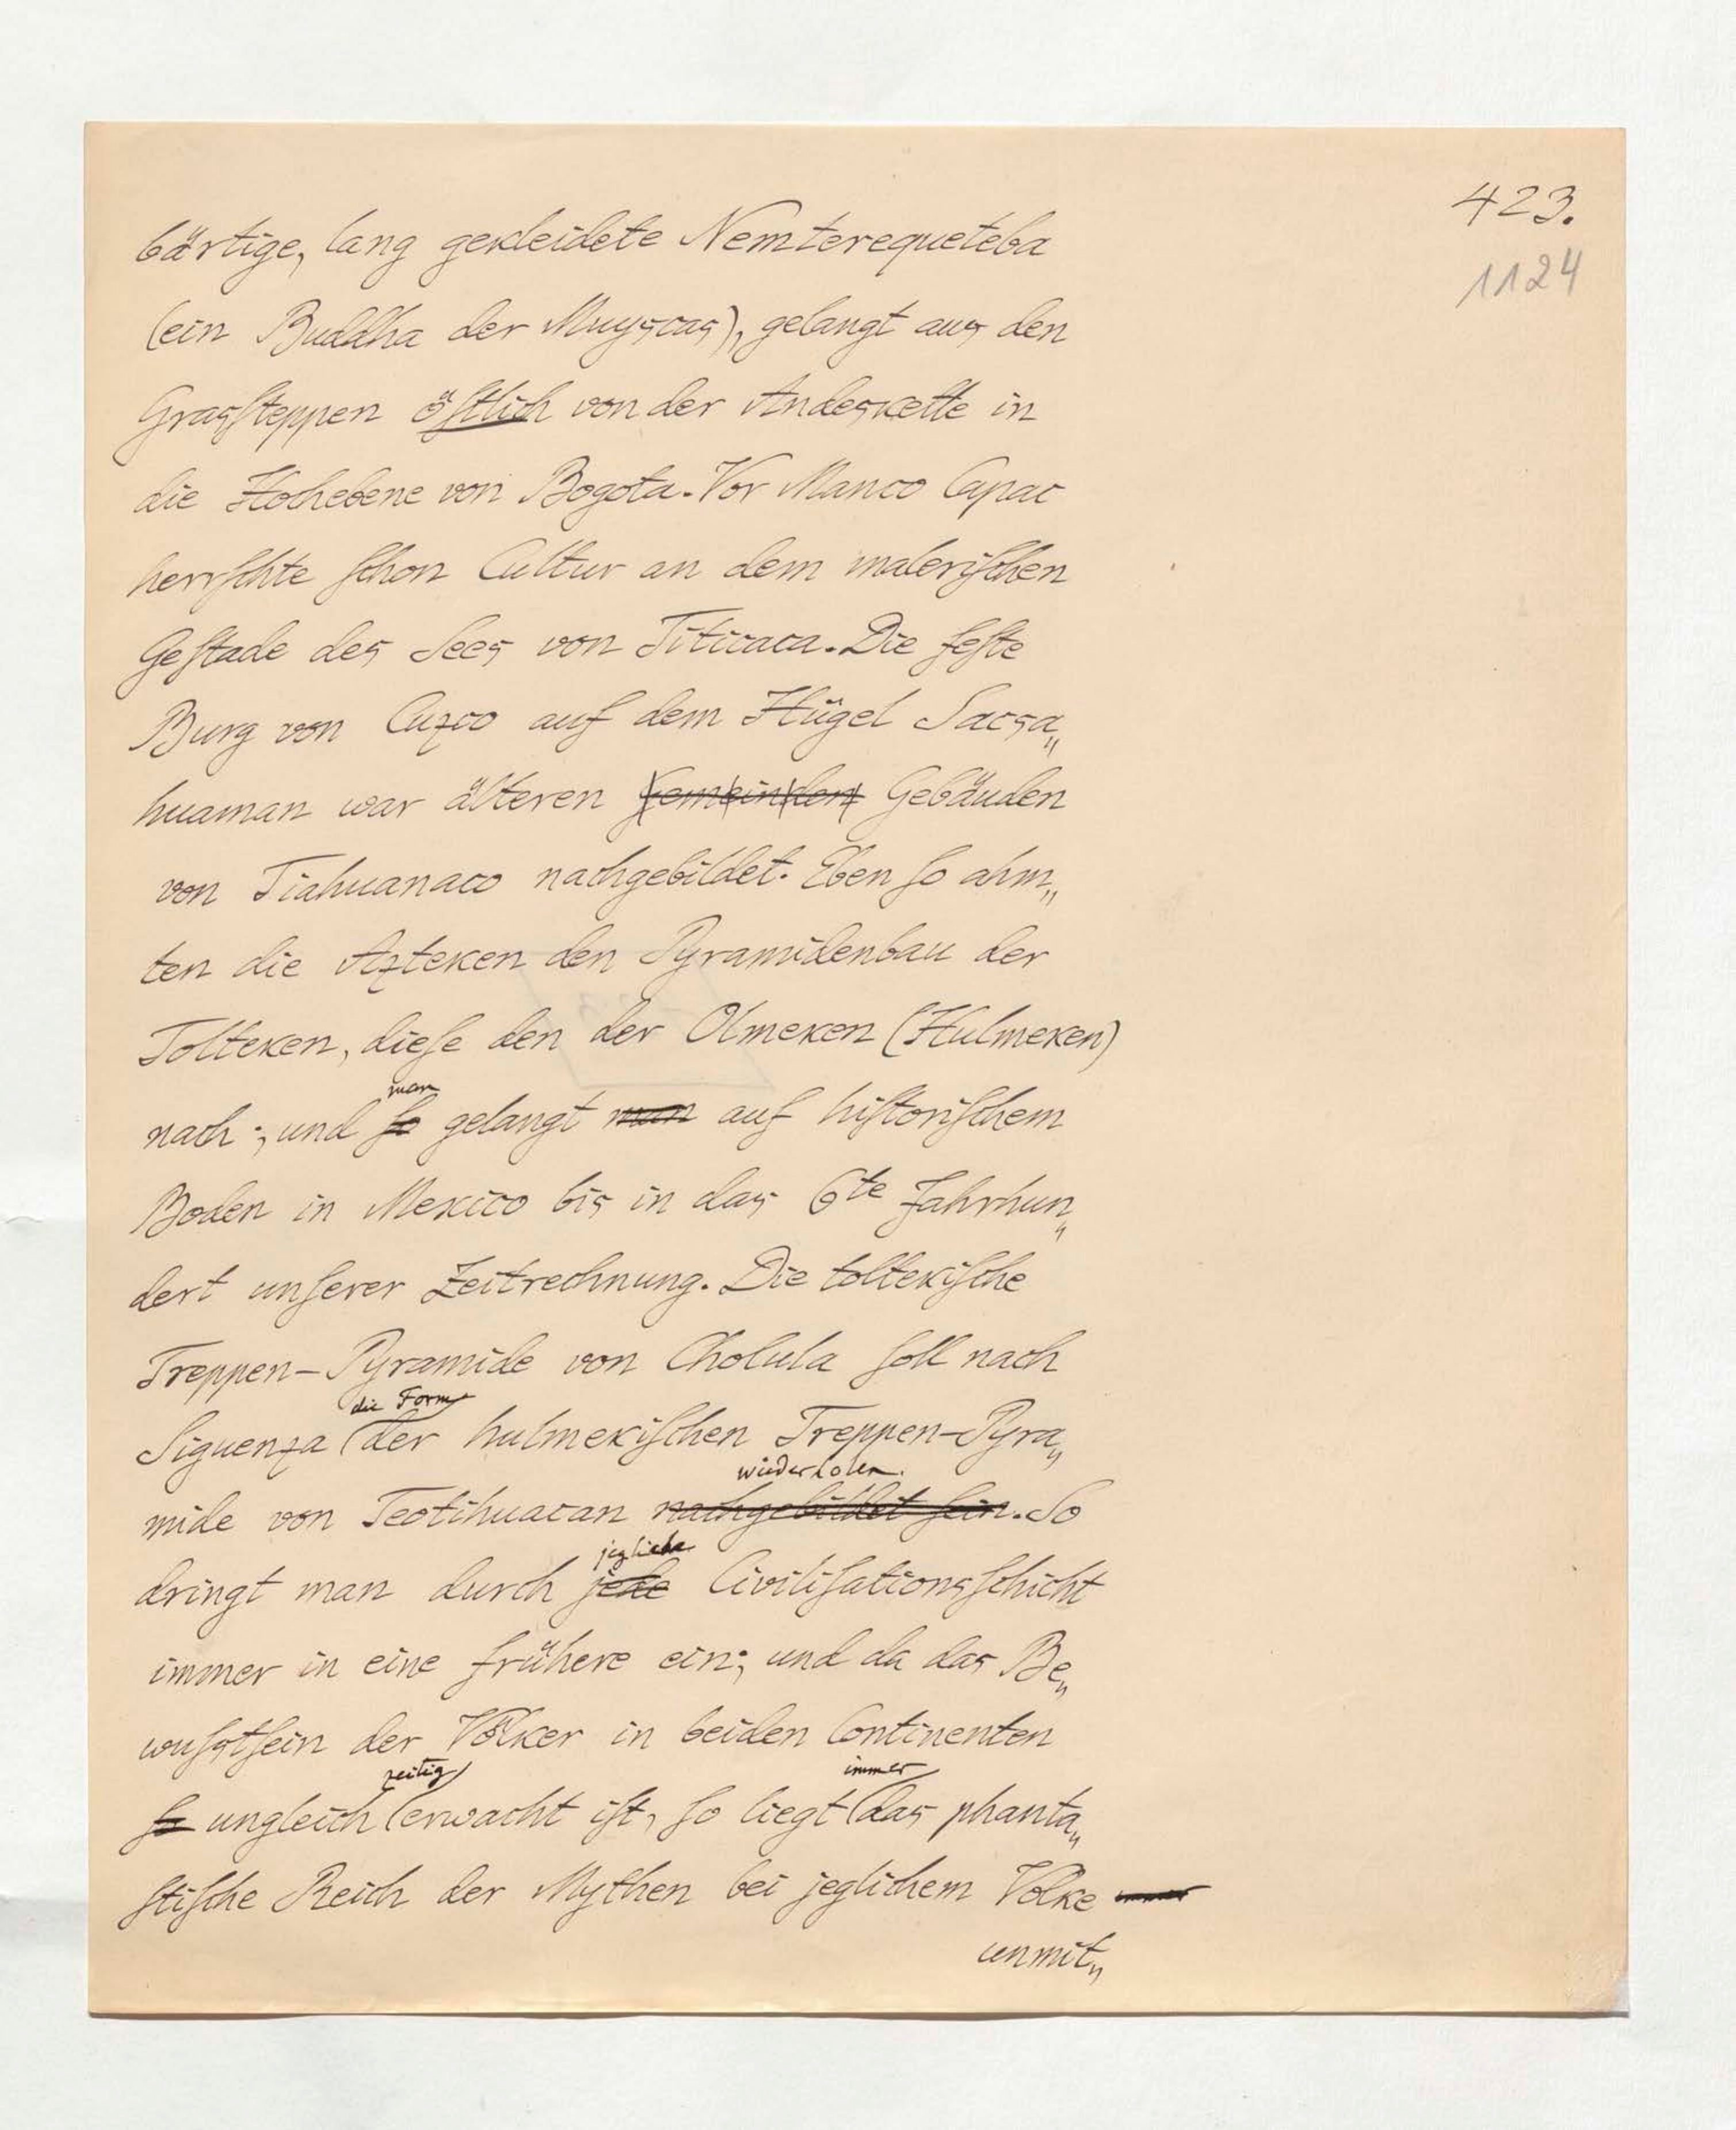 423.
1124
bärtige, lang gekleidete Nemterequeteba
(ein Buddha der Muyscas), gelangt aus den
Grasſteppen öſtlich von der Andeskette in
die Hochebene von Bogota. Vor Manco Capac
herrſchte ſchon Cultur an dem maleriſchen
Geſtade des Sees von Titicaca. Die feſte
Burg von Cuzco auf dem Hügel Sacsa„
huaman war älteren Gemeinden Gebäuden
von Tiahuanaco nachgebildet. Eben ſo ahm„
ten die Azteken den Pyramidenbau der
Tolteken, dieſe den der Olmeken (Hulmeken)
man
nach; und ſo gelangt man auf hiſtoriſchem
Boden in Mexico bis in das 6te Jahrhun„
dert unſerer Zeitrechnung. Die toltekiſche
Treppen-Pyramide von Cholula ſoll nach
die Form
Siguenza der hulmekiſchen Treppen-Pyra„
wiederholen.
mide von Teotihuacan nachgebildet ſein. So
jegliche
dringt man durch jede Civiliſationsſchicht
immer in eine frühere ein; und da das Be„
wuſstſein der Völker in beiden Continenten
zeitig immer
ſo ungleich erwacht iſt, ſo liegt das phanta„
ſtiſche Reich der Mythen bei jeglichem Volke immer
unmit„